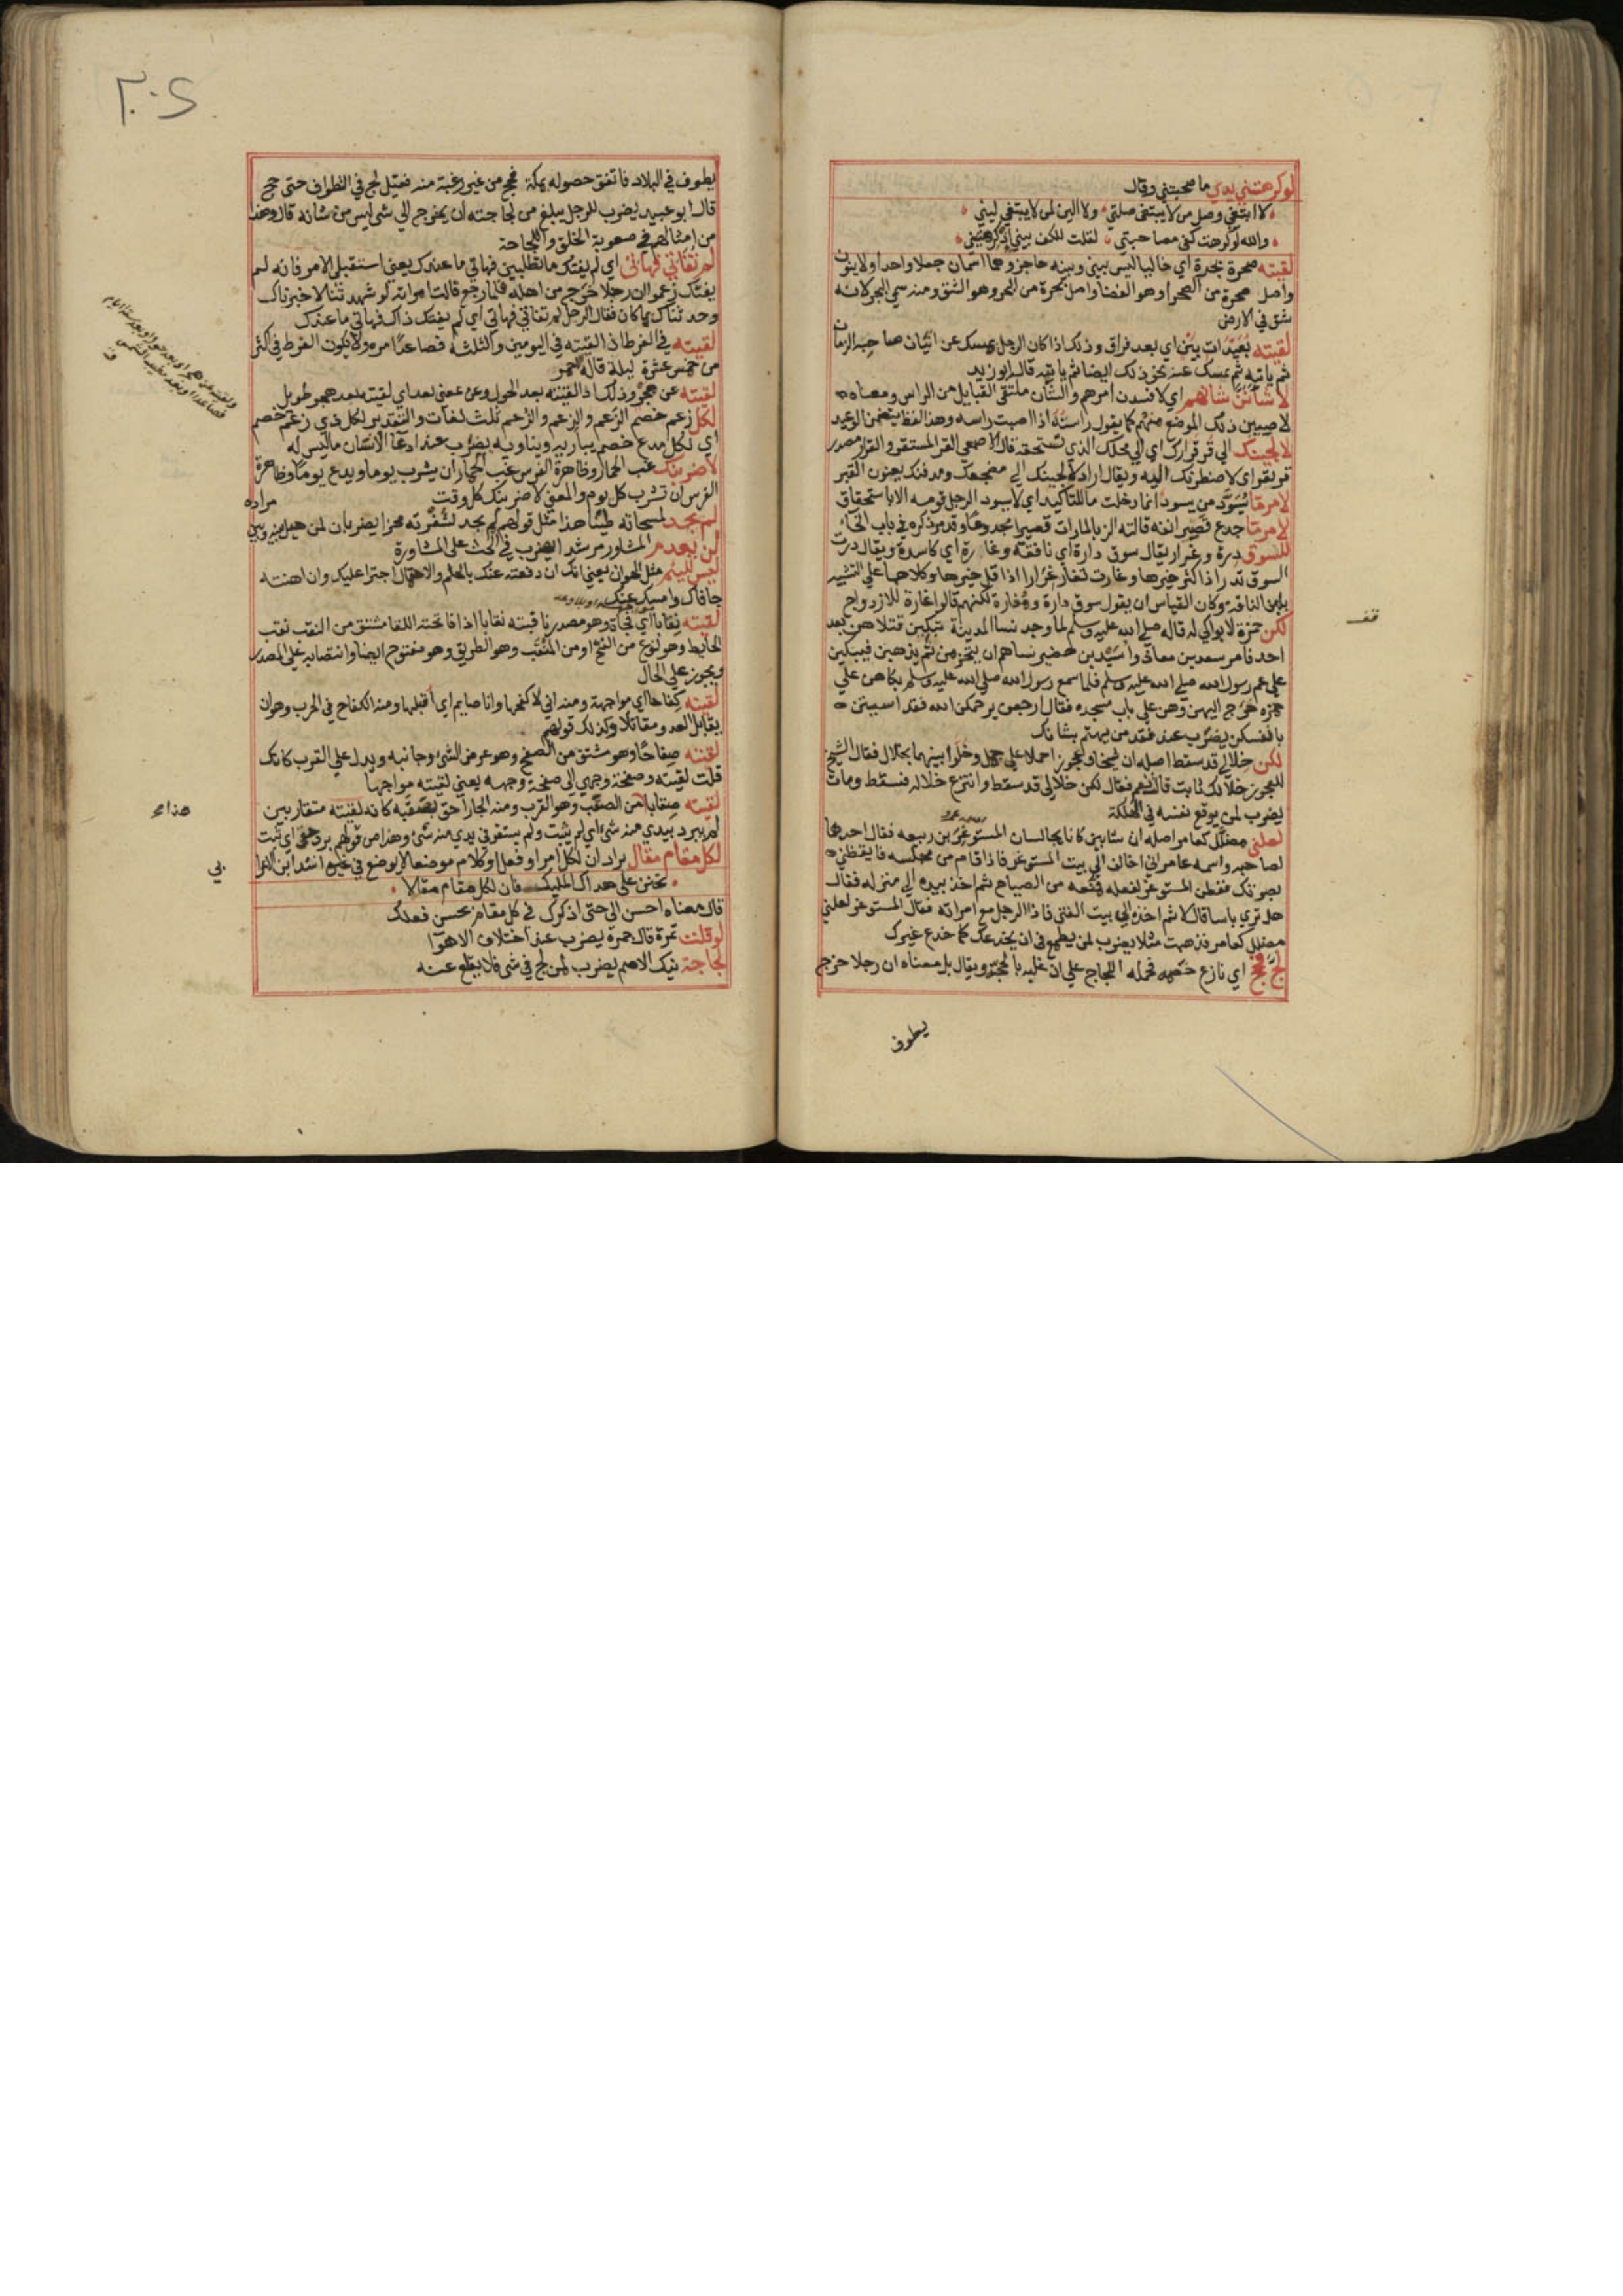 لوكرهتني يدي ما صحبتني وقال
لا ابتغي وصل من لا يبتغي صلتي ولا الين لمن لا يبتغي ليني
والله لو كرهت كفي مصاحبتي لقلت للكف بيني اذ كرهتيني
لقيته صحرة بحرة اي خاليا ليس بيني وبينه حاجز وهما اسمان جعلا واحدا ولا ينون
واصل صحرة من الصحرا وهو الفضا واصل بحرة من البحر وهو الشق ومنه سمي البحر لانه
شق في الارض
لقيته بعيدات بين اي بعد فراق وذلك اذا كان الرجل يمسك عن اتيان صاحبه الزمان
ثم ياتيه ثم يمسك عنه نحو ذلك ايضا ثم ياتيه قاله ابو زيد
لاشانن شانهم اي لافسدن امرهم والشان ملتقى القبايل من الراس ومعناه
لاصيبن ذلك الموضع منهم كما يقول راسته اذا اصبت راسه وهذا لفظ يتضمن الوعيد
لالجينك الي قر قرارك اي الي محلك الذي تستحقه قال الاصمعي القر المستقر والقرار مصدر
قر يقر اي لاضطرنك اليه ويقال اراد لالجينك الي مضجعك ومدفنك يعنون القبر
لامر ما يسود من يسود انما دخلت ما للتاكيد اي لا يسود الرجل قومه الا باستحقاق
لامر ما جدع قصير انفه قالته الزبا لما رات قصيرا مجدوعا وقد مر ذكره في باب الخا
للسوق درة وغرار يقال سوق دارة اي نافقة وغارة اي كاسدة ويقال درت
السوق تدر اذا كثر خيرها وغارت تغار غرارا اذا قل خيرها وكلاهما على التشبيه
بلبن الناقة وكان القياس ان يقول سوق دارة ومغارة لكنهم قالوا غارة للازدواج
لكن حمزة لا بواكي له قاله صلي الله عليه وسلم لما وجد نسا المدينة تبكين قتلاهن بعد
احد فامر سعد بن معاذ واسيد بن حضير نساهم ان يتحزمن ثم يذهبن فيبكين
علي عم رسول الله صلي الله عليه وسلم فلما سمع رسول الله صلي الله عليه وسلم بكاهن علي
حمزه خرج اليهن وهن علي باب مسجده فقال ارجعن يرحمكن الله فقد اسيتن
بانفسكن يضرب عند فقد من يهتم بشانك
لكن خلالي قد سقط اصله ان شيخا وعجوزا حملا علي جمل وخلا بينهما بخلال فقال الشيخ
للعجوز خلالك ثابت قالت نعم فقال لكن خلالي قد سقط وانتزع خلاله فسقط ومات
يضرب لمن يوقع نفسه في الهلكة
لعلني مضلل كعامر اصله ان شابين كانا يجالسان المستوغر بن ربيعه فقال احدهما
لصاحبه واسمه عامر اني اخالف الي بيت المستوغر فاذا قام من مجلسه فايقظني
بصوتك ففطن المستوغر لفعله فمنعه من الصياح ثم اخذ بيده الي منزله فقال
هل تري باسا قال لا ثم اخذه الي بيت الفتى فاذا الرجل مع امراته فقال المستوغر لعلني
مضلل كعامر فذهبت مثلا يضرب لمن يطمع في ان يخدعك كما خدع غيرك
لج فحج اي نازع خصمه فحمله اللجاج علي ان غلبه بالحجة ويقال بل معناه ان رجلا خرج
يطوف
قف
٢٠٤
يطوف في البلاد فاتفق حصوله بمكة فحج من غير رغبة منه فقيل لج في الطواف حتى حج
قال ابو عبيد يضرب للرجل يبلغ من لجاجته ان يخرج الي شي ليس من شانه قال وهذا
من امثالهم في صعوبة الخلق واللجاجة
لم تفاتي فهاتي اي لم يفتك ما تطلبين فهاتي ما عندك يعني استقبلي الامر فانه لم
يفتك زعموا ان رجلا خرج من اهله فلما رجع قالت امراته لو شهدتنا لاخبرناك
وحدثناك بما كان فقال الرجل لم تفاتي فهاتي اي لم يفتك ذاك فهاتي ما عندك
لقيته في الفرط اذا لقيته في اليومين والثلثه فصاعدا مره ولا يكون الفرط في اكثر
من خمس عشرة ليلة قاله الاحمر
لقيته عن هجر وذلك اذا لقيته بعد الحول وعن عفني بعد اي لقيته بعد هجر طويل
لكل زعم خصم الزعم والزعم والزعم ثلث لغات والتقدير لكل ذي زعم خصم
اي لكل مدع خصم يباريه ويناويه يضرب عند ادعا الانسان ما ليس له
لاضربنك غب الحمار وظاهرة الفرس غب الحمار ان يشرب يوما ويدع يوما وظاهرة
الفرس ان تشرب كل يوم والمعني لاضربنك كل وقت
لم يجد لمسحاته طينا هذا مثل قولهم لم يجد لشفرته محزا يضربان لمن حيل بينه وبين
مراده
لن يعدم المشاور مرشدا يضرب في الحث على المشاورة
ليس للئيم مثل الهوان يعني انك ان دفعته عنك بالحلم والاحتمال اجترا عليك وان اهنته
خافك وامسك عنك
لقيته نقابا اي فجاة وهو مصدر ناقبته نقابا اذا فاجاته اللقا مشتق من النقب نقب
الحايط وهو نوع من الفتح او من المنقب وهو الطريق وهو مفتوح ايضا وانتصابه علي المصدر
ويجوز علي الحال
لقيته كفاحا اي مواجهة ومنه اني لاكفحها وانا صايم اي اقبلها ومنه الكفاح في الحرب وهو ان
يقابل العدو مقابلا وكذلك قولهم
لقيته صفاحا وهو مشتق من الصفح وهو عرض الشي وجانبه ويدل علي القرب كانك
قلت لقيته وصفحة وجهي الي صفحة وجهه يعني لقيته مواجها
لقيته صقابا من الصقب وهو القرب ومنه الجار احق بصقبه كانه لقيته متقاربين
لم يبرد بيدي منه شي اي لم يثبت ولم يستقر في يدي منه شي وهذا من قولهم برد حقي اي ثبت
لكل مقام مقال يراد ان لكل امر او فعل او كلام موضعا لا يوضع في غيره انشد ابن الاعرا
بي
تحنن علي هداك المليك فان لكل مقام مقالا
قال معناه احسن الي حتى اذكرك في كل مقام بحسن فعلك
لو قلت تمرة قال جمرة يضرب عند اختلاف الاهوا
لجاجة نيك الاصم يضرب لمن لج في شي فلا يقلع عنه
هذا مح